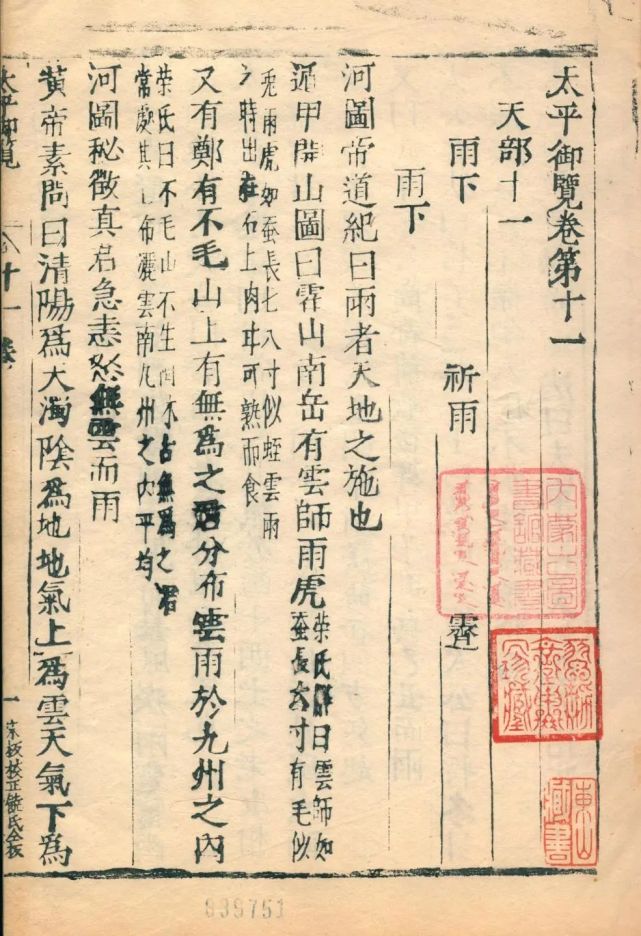 太平御覽卷第十一
天部十一
雨下 祈雨 霽
雨下
河圖帝道紀曰雨者天地之施也
遁甲開山圖曰霍山南岳有雲師雨虎
榮氏觧曰雲師如
蚕長六寸有毛似
兎雨虎如蚕長七八寸似蛭雲雨
之時出在石上肉甘可熟而食
又有鄭有不毛山上有無爲之君分布雲雨於九州之內
榮氏曰不毛山不生草木古無爲之君
常處其上布灑雲雨九州之內平均
河圖秘徵真君急恚怒無雲而雨
黄帝素問曰清陽爲天濁陰爲地地氣上爲雲天氣下爲
太平御覽
十一卷
一
東山臧書
839751